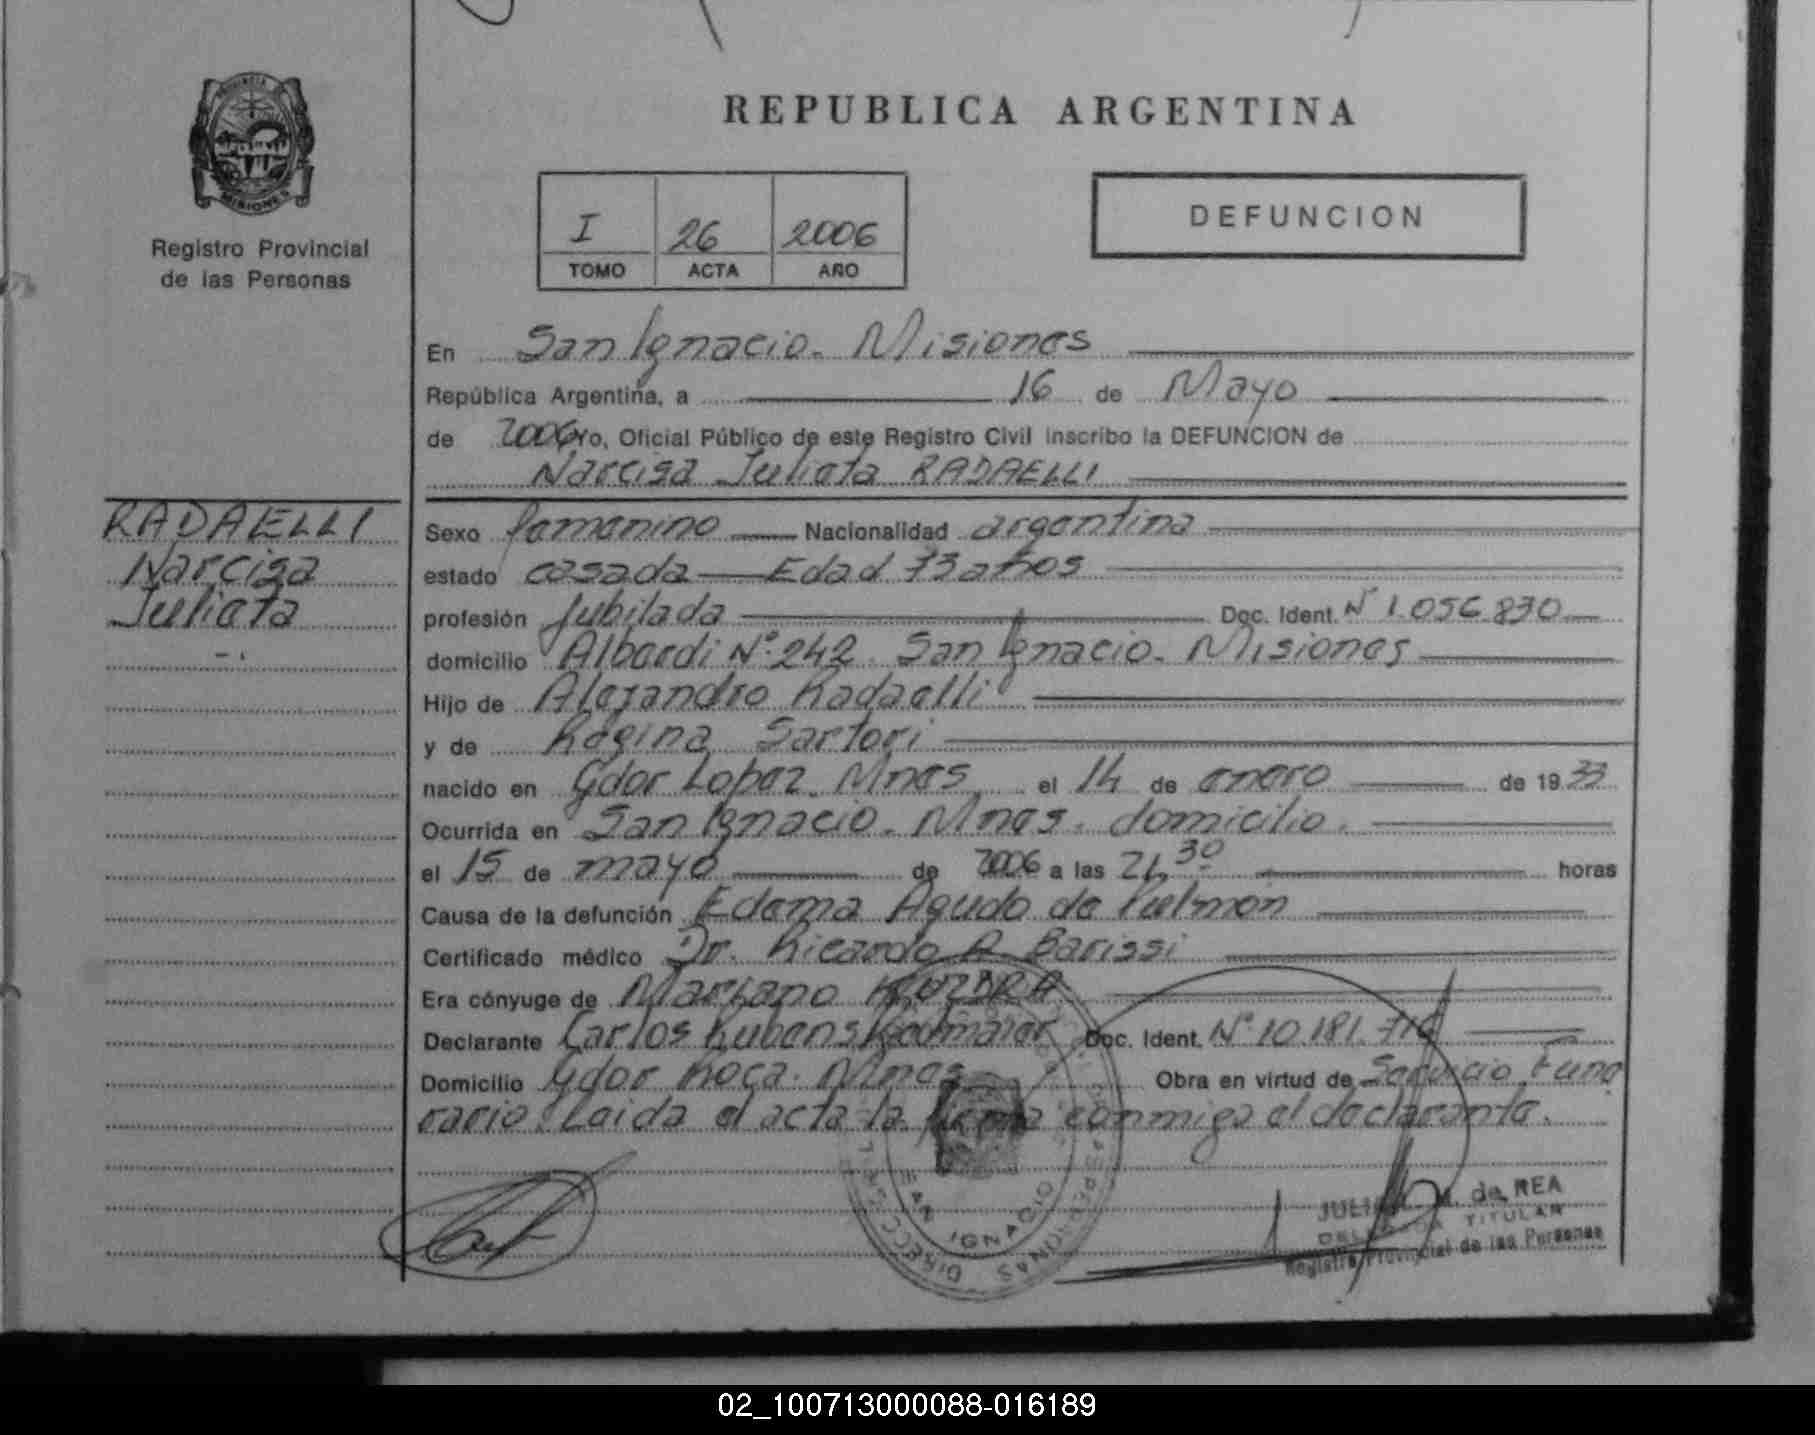 REPUBLICA ARGENTINA
PROVINCIA
MISIONES
Registro Provincial
de las Personas
I 26 2006
TOMO ACTA AÑO
DEFUNCION
En San Ignacio. Misiones
República Argentina, a 16 de Mayo
de 2006 yo, Oficial Público de este Registro Civil inscribo la DEFUNCION de
Narcisa Julieta RADAELLI
RADAELLI
Narcisa
Julieta
Sexo femenino Nacionalidad argentina
estado casada Edad 73 años
profesión Jubilada Doc. Ident. Nº 1.056.830
domicilio Alberdi Nº 242. San Ignacio. Misiones
Hijo de Alejandro Radaelli
y de Regina Sartori
nacido en Gdor Lopez. Mnes. el 14 de enero de 1933
Ocurrida en San Ignacio. Mnes. domicilio.
el 15 de mayo de 2006 a las 21,30 horas
Causa de la defunción Edema Agudo de Pulmón
Certificado médico Dr. Ricardo A Barissi
Era cónyuge de Mariano
Declarante Carlos Ruben Doc. Ident. Nº 10.181.
Domicilio Gdor Roca. Mnes Obra en virtud de Servicio Fune
rario. Leida el acta la firma conmigo el declarante.
SAN IGNACIO
de REA
TITULAR
Registro Provincial de las Personas
02_100713000088-016189